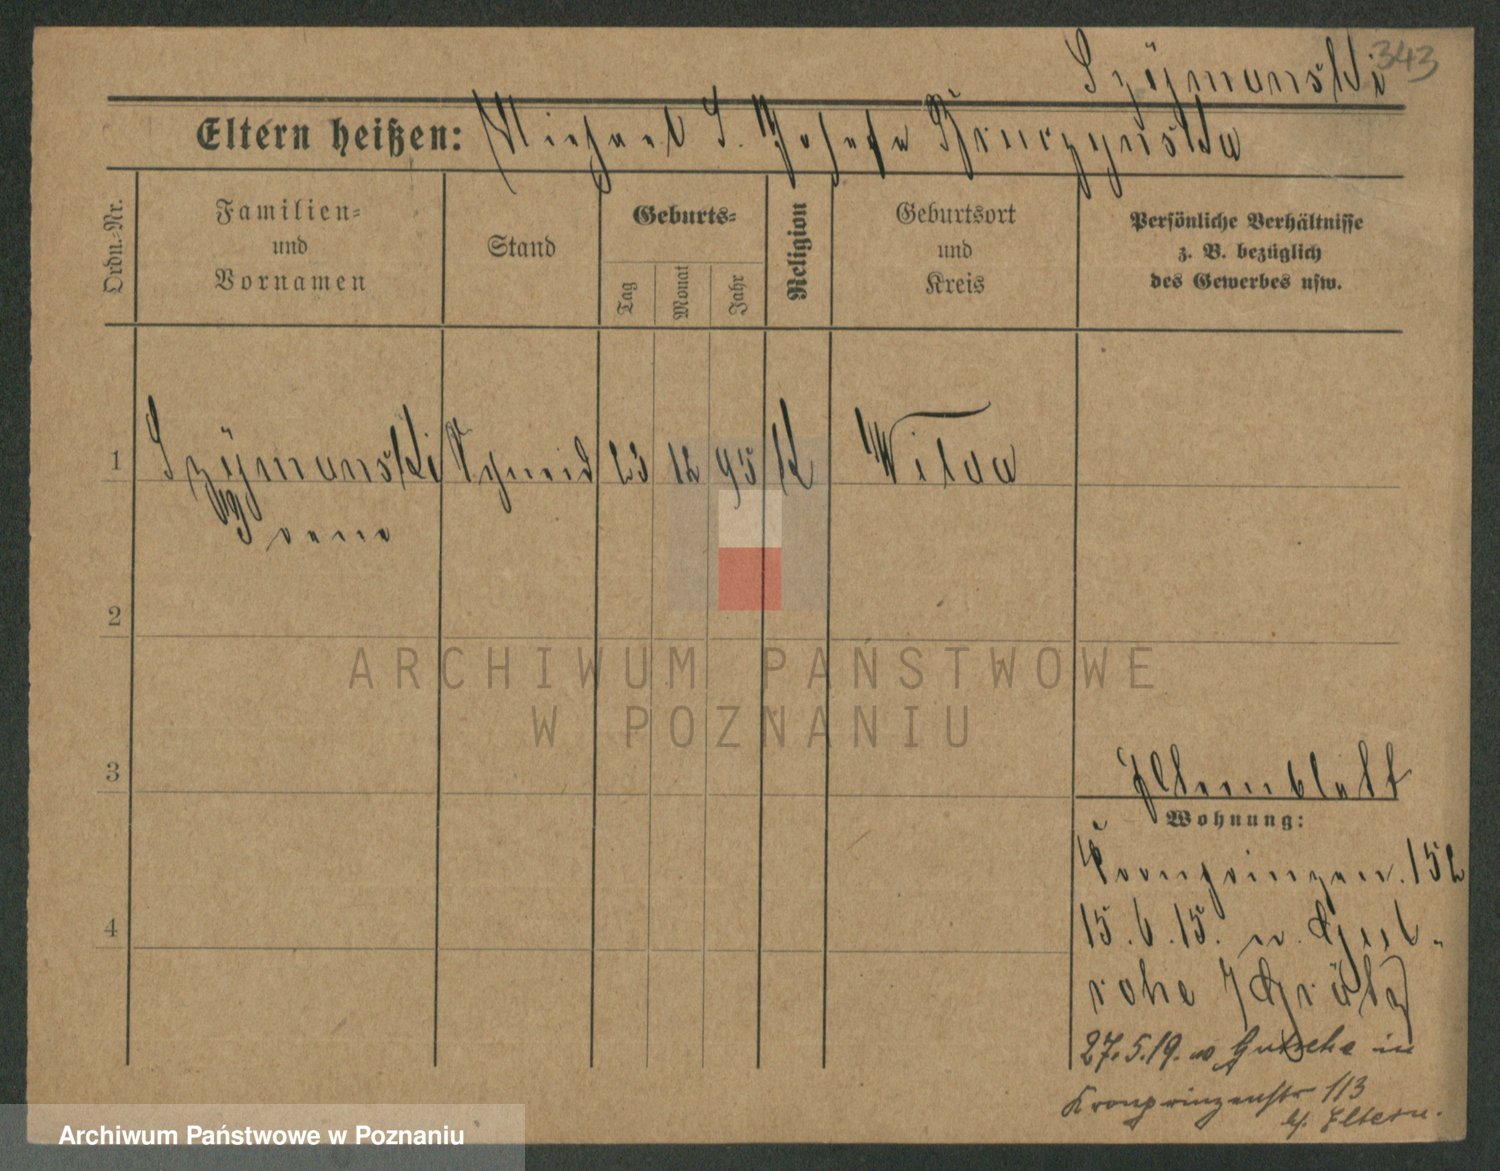 343
Szÿmanski
Eltern heißen: Michael S. Josefa
Ordn.-Nr.
Familien-
und
Vornamen
Stand
Geburts-
Tag
Monat
Jahr
Religion
Geburtsort
und
Kreis
Persönliche Verhältnisse
z. B. bezüglich
des Gewerbes usw.
1 Szÿmanski Schneid 23 12 95 K Wilda
2
ARCHIWUM PAŃSTWOWE
W POZNANIU
3
Elternblatt
Wohnung:
Kronprinzen. 152
15.6.15. n.
/Grätz
27.5.19. in
Kronprinzenstr 113
b/. Eltern.
4
Archiwum Państwowe w Poznaniu